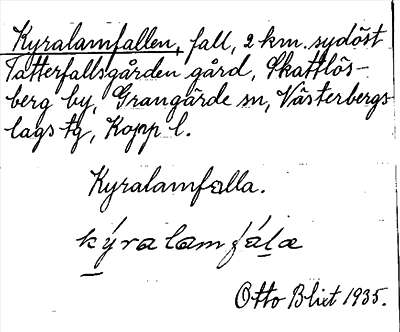 Kyralamfallen, fall, 2 km. sydöst
Tatterfallsgården gård, Skattlös-
berg by, Grangärde sn, Västerbergs
lags tg, Kopp l.
Kyralamfalla.
kýralamfála
Otto Blixt 1935.